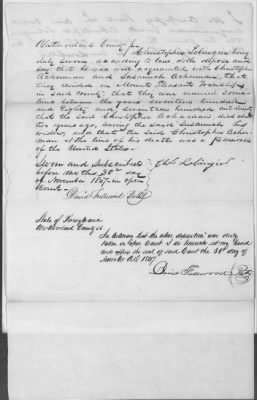 Westmoreland County ss
Christopher Lobingier being
duly sworn according to law doth depose and
say that he was well acquainted with Christopher
Ackerman and Susannah Ackerman, that
they resided in Mount Pleasant Township
in said County; that they was married some
time between the years seventeen hundred
and eighty and seventeen hundred and ninety
that the said Christopher Ackaman died about
two years ago, leaving the said Susannah his
widow, and that the said Christopher Acker-
man at the time of his death was a pensioner
of the United States.
Sworn and Subscribed
before me this 30th day
of November 1847 in open
Court
David Fullwood Prothy
Chr Lobingier
State of Pennsylvania
Westmoreland County ss
In testimony that the above deposition was duly
taken in open Court I do hereunto set my hand
and affix the seal of said Court the 30th day of
November A.D. 1847
David Fullwood Prothy